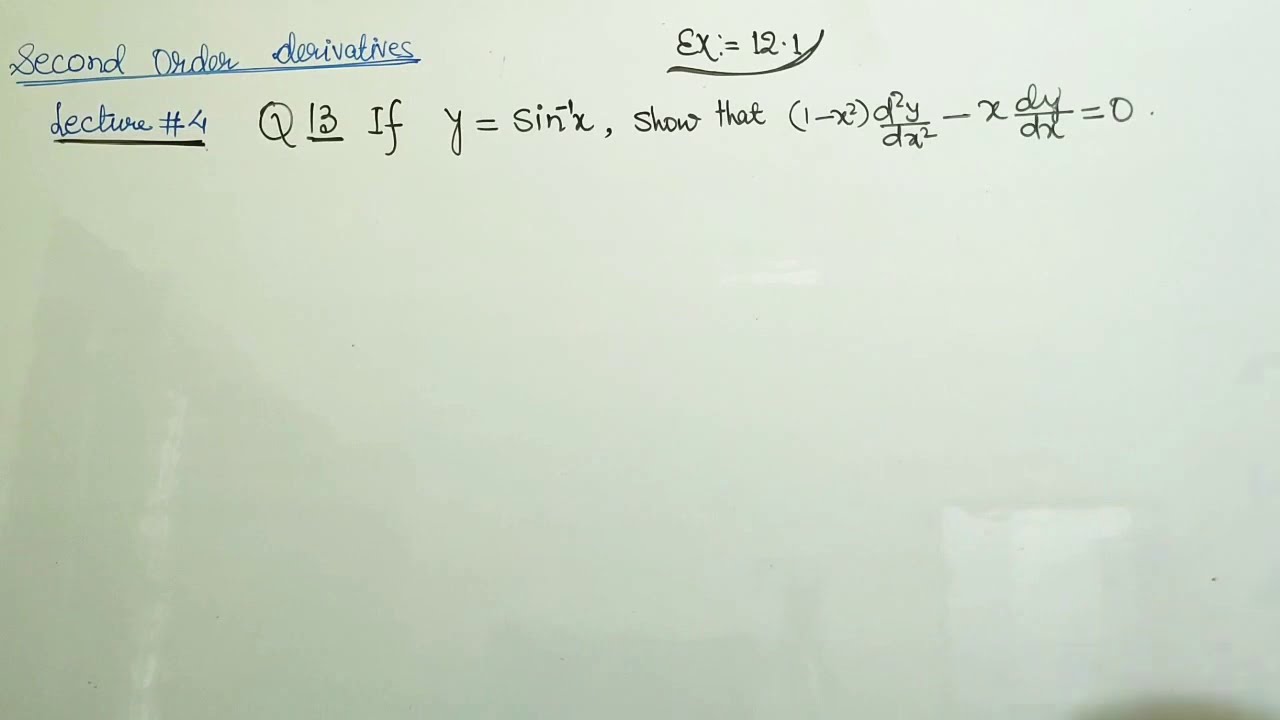 Second Order derivatives
Ex:= 12.1
Lecture #4 Q 13 If y = sin⁻¹x, show that (1-x²) d²y/dx² - x dy/dx = 0.